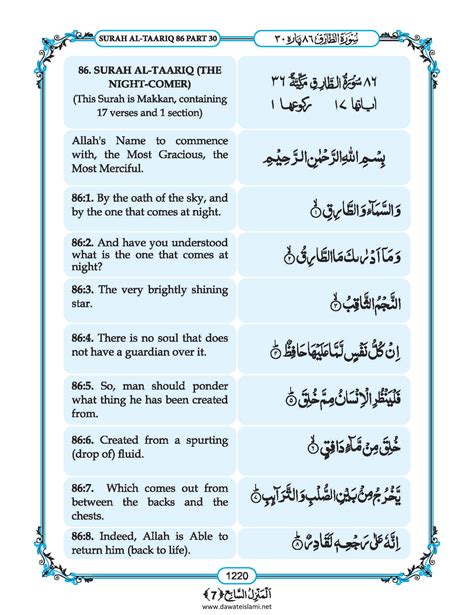 SURAH AL-TAARIQ 86 PART 30
سُوْرَةُ الطَّارِق ٨٦ پارہ ٣٠
86. SURAH AL-TAARIQ (THE
NIGHT-COMER)
(This Surah is Makkan, containing
17 verses and 1 section)
٨٦ سُوْرَةُ الطَّارِقِ مَكِّيَّةٌ ٣٦
اٰیاتها ١٧ رکوعها ١
Allah's Name to commence
with, the Most Gracious, the
Most Merciful.
بِسْمِ اللّٰهِ الرَّحْمٰنِ الرَّحِیْمِ
86:1. By the oath of the sky, and
by the one that comes at night.
وَ السَّمَآءِ وَ الطَّارِقِۙ۱
86:2. And have you understood
what is the one that comes at
night?
وَ مَاۤ اَدْرٰىكَ مَا الطَّارِقُۙ۲
86:3. The very brightly shining
star.
النَّجْمُ الثَّاقِبُۙ۳
86:4. There is no soul that does
not have a guardian over it.
اِنْ كُلُّ نَفْسٍ لَّمَّا عَلَیْهَا حَافِظٌؕ۴
86:5. So, man should ponder
what thing he has been created
from.
فَلْیَنْظُرِ الْاِنْسَانُ مِمَّ خُلِقَؕ۵
86:6. Created from a spurting
(drop of) fluid.
خُلِقَ مِنْ مَّآءٍ دَافِقٍۙ۶
86:7. Which comes out from
between the backs and the
chests.
یَّخْرُجُ مِنْۢ بَیْنِ الصُّلْبِ وَ التَّرَآىٕبِؕ۷
86:8. Indeed, Allah is Able to
return him (back to life).
اِنَّهٗ عَلٰى رَجْعِهٖ لَقَادِرٌؕ۸
1220
اَلْمَنْزِلُ السَّابِعُ ﴿7﴾
www.dawateislami.net